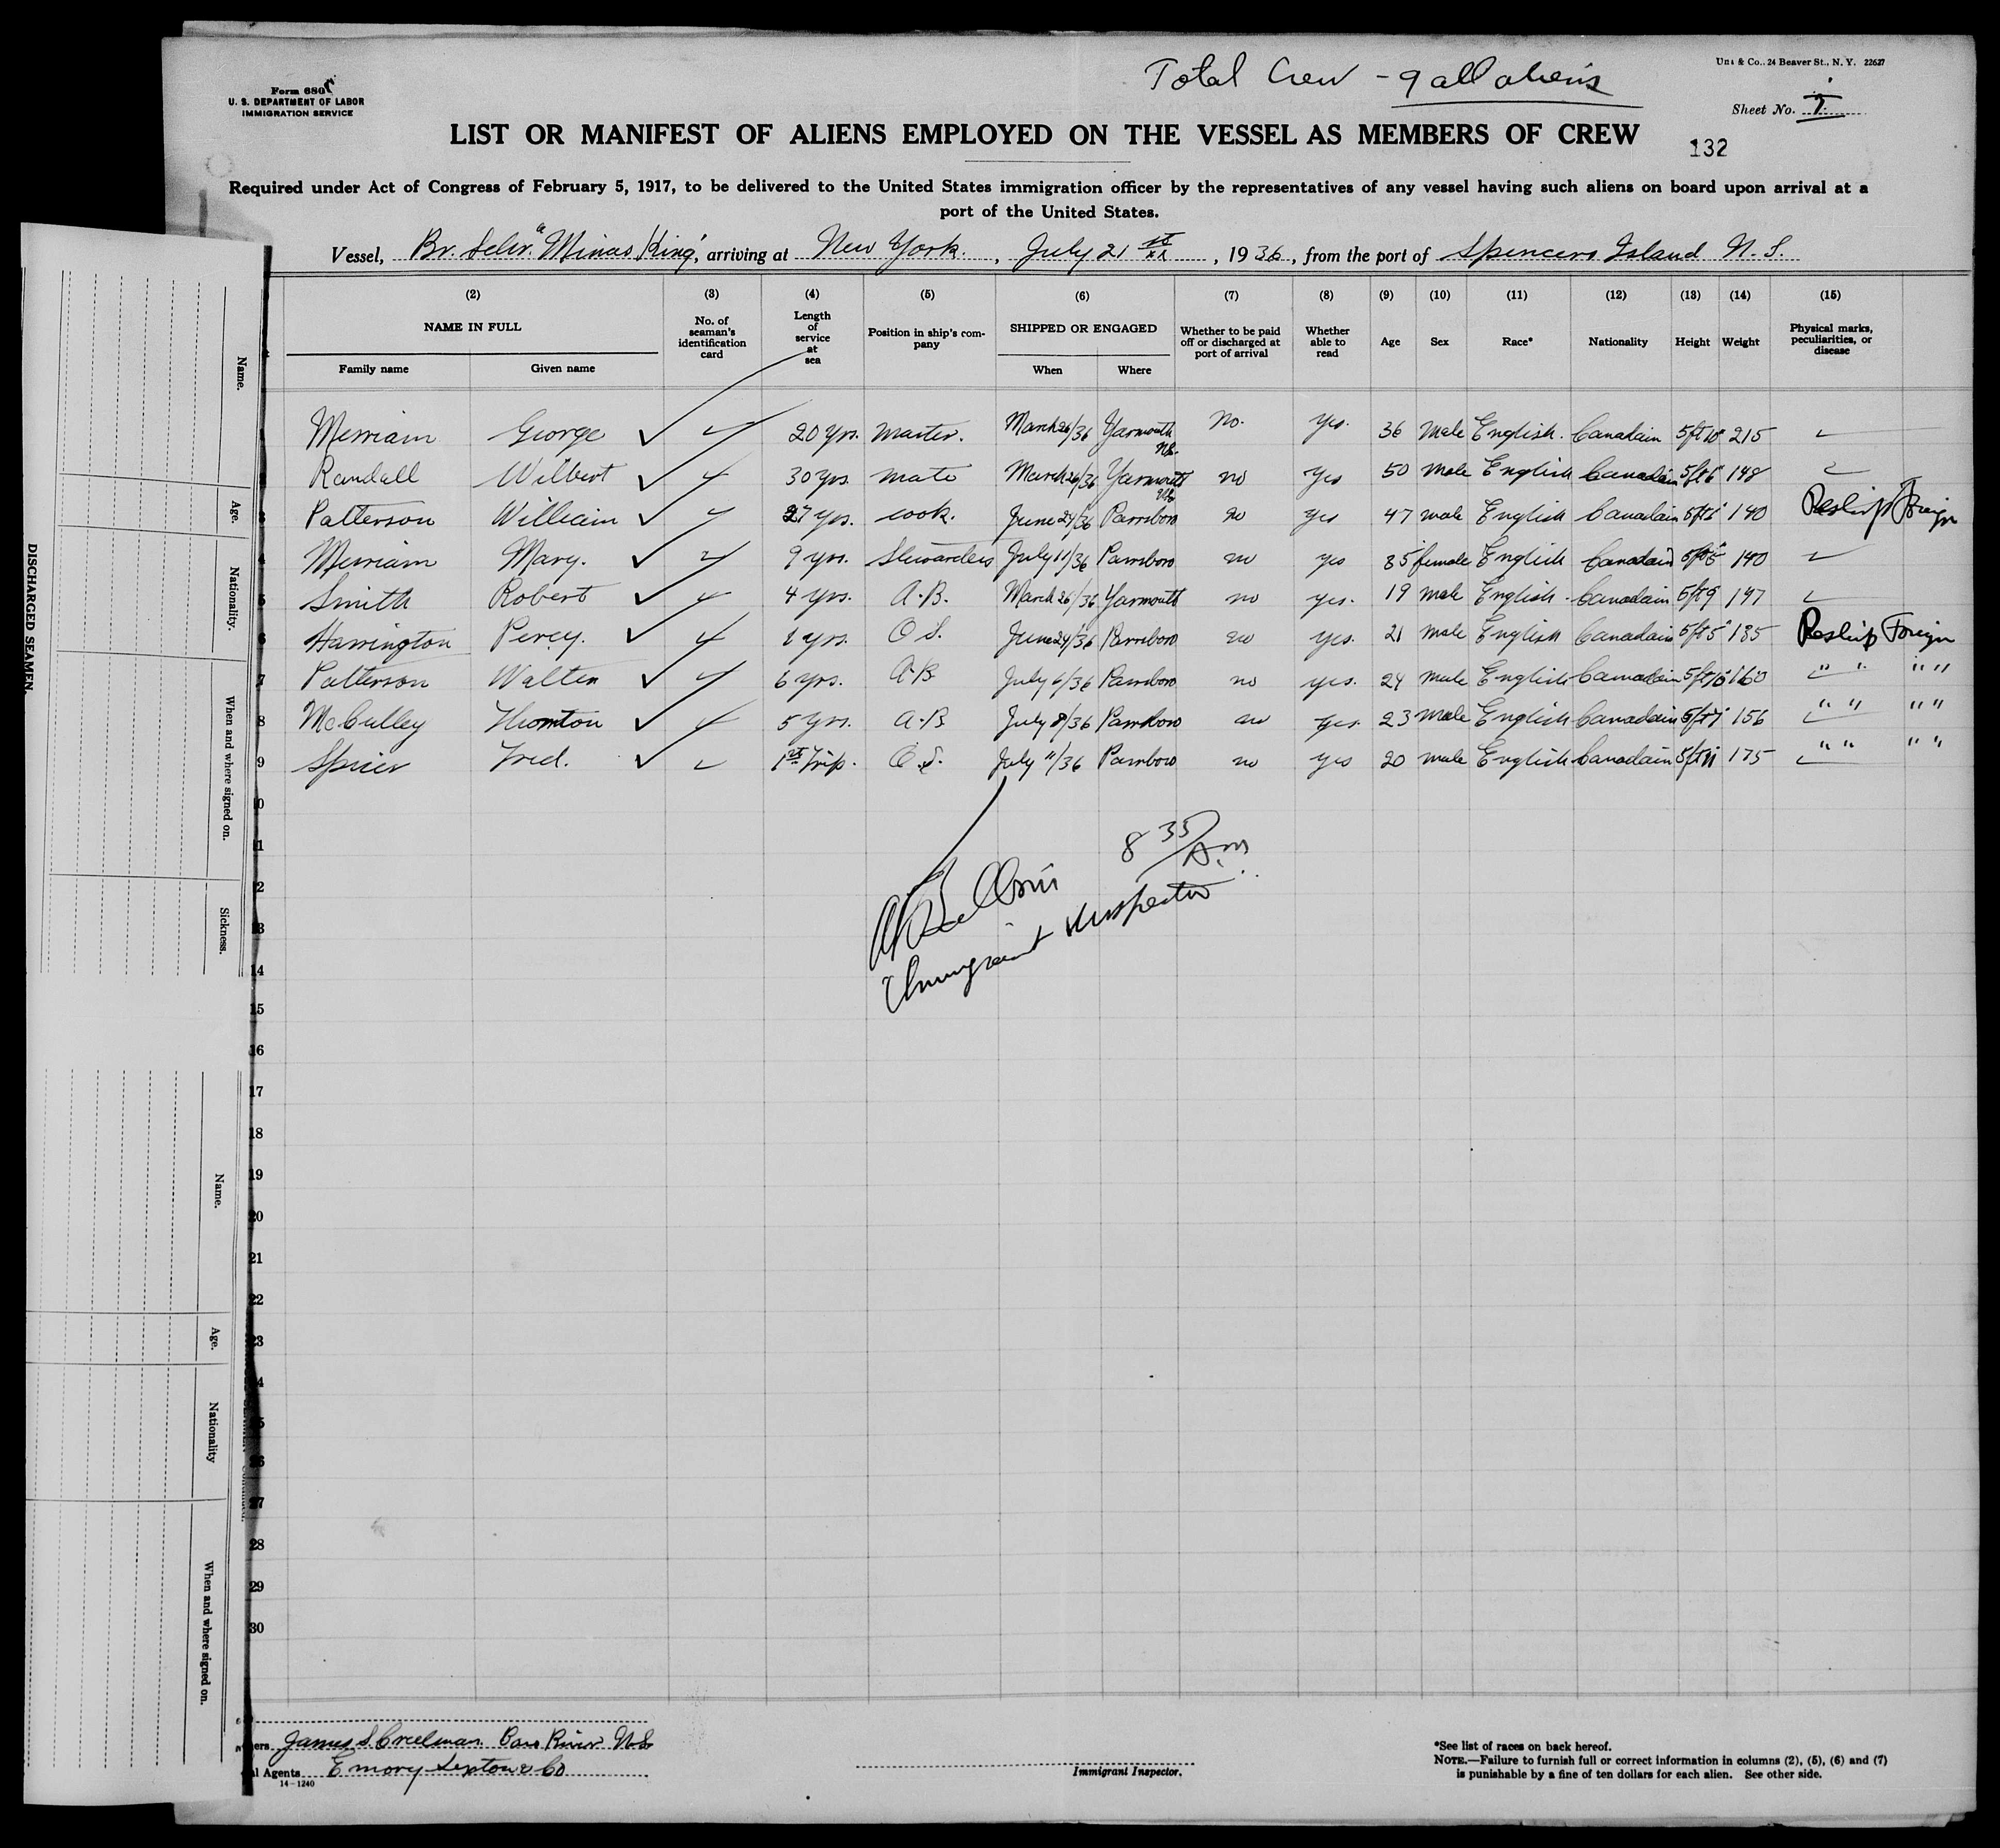 Total Crew - 9 all aliens
Form 680
U. S. DEPARTMENT OF LABOR
IMMIGRATION SERVICE
& Co., 24 Beaver St., N. Y. 22627
Sheet No. 1
LIST OR MANIFEST OF ALIENS EMPLOYED ON THE VESSEL AS MEMBERS OF CREW
132
Required under Act of Congress of February 5, 1917, to be delivered to the United States immigration officer by the representatives of any vessel having such aliens on board upon arrival at a
port of the United States.
Vessel, Br. Schr. "Minas King", arriving at New York, July 21st, 1936, from the port of Spencers Island N.S.
(2) (3) (4) (5) (6) (7) (8) (9) (10) (11) (12) (13) (14) (15)
NAME IN FULL Family name Given name No. of seaman's identification card Length of service at sea Position in ship's company SHIPPED OR ENGAGED When Where Whether to be paid off or discharged at port of arrival Whether able to read Age Sex Race* Nationality Height Weight Physical marks, peculiarities, or disease
Merriam George 20 yrs. master. March 26/36 Yarmouth N.S. No. Yes. 36 Male English. Canadain 5ft10" 215
2 Randall Wilbert 30 yrs. mate March 26/36 Yarmouth N.S. no Yes 50 male English Canadain 5ft6" 148
3 Patterson William 27 yrs. cook. June 24/36 Parrsboro no yes 47 male English Canadain 140 Reship Foreign
4 Merriam Mary. 9 yrs. Stewardess July 11/36 Parrsboro no yes 35 female English Canadain 140
5 Smith Robert 4 yrs. A.B. March 26/36 Yarmouth no yes. 19 male English. Canadain 5ft9 147
6 Harrington Percy. yrs. O S. June 24/36 Parrsboro no yes. 21 male English Canadain 5ft5" 135 Reship Foreign
7 Patterson Walter 6 yrs. A.B. July 6/36 Parrsboro no yes. 24 male English Canadain 5ft10" 160 " " " "
8 McCulley Thornton 5 yrs. A.B July 8/36 Parrsboro no yes. 23 male English Canadain 5ft7" 156 " " " "
9 Spicer Fred. 1st Trip. O.S. July 11/36 Parrsboro no yes 20 male English Canadain 5ft11 175 " " " "
10
11
12
8 35/A.m.
13
Immigrant Inspector
14
15
16
17
18
19
20
21
22
23
24
25
26
27
28
29
30
James S. Creelman. Parrs River N.S.
Agents Emory Sexton & Co
14-1240
Immigrant Inspector.
*See list of races on back hereof.
NOTE.—Failure to furnish full or correct information in columns (2), (5), (6) and (7)
is punishable by a fine of ten dollars for each alien. See other side.
DISCHARGED SEAMEN.
Name.
Age.
Nationality.
When and where signed on.
Sickness.
Name.
Age.
Nationality
When and where signed on.